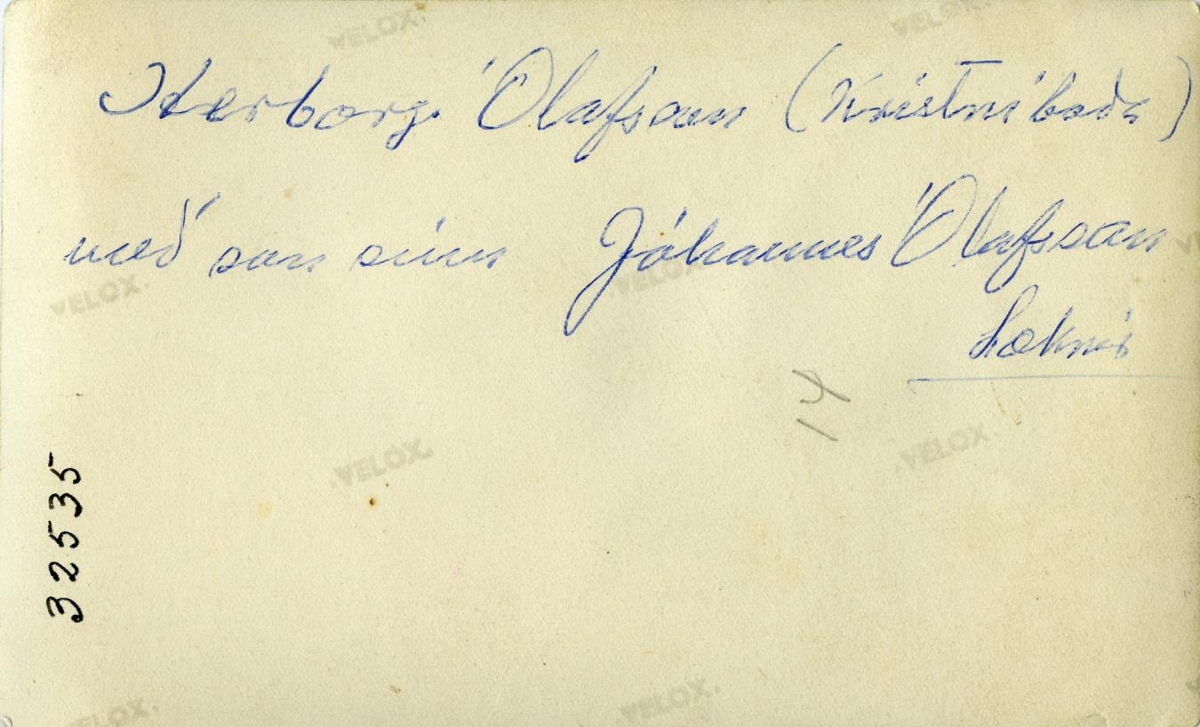 Herborg Ólafsson (Kristniboða)
með son sinn Jóhannes Ólafsson
Lækni
14
32535
VELOX.
VELOX.
VELOX.
VELOX.
VELOX.
VELOX.
VELOX.
VELOX.